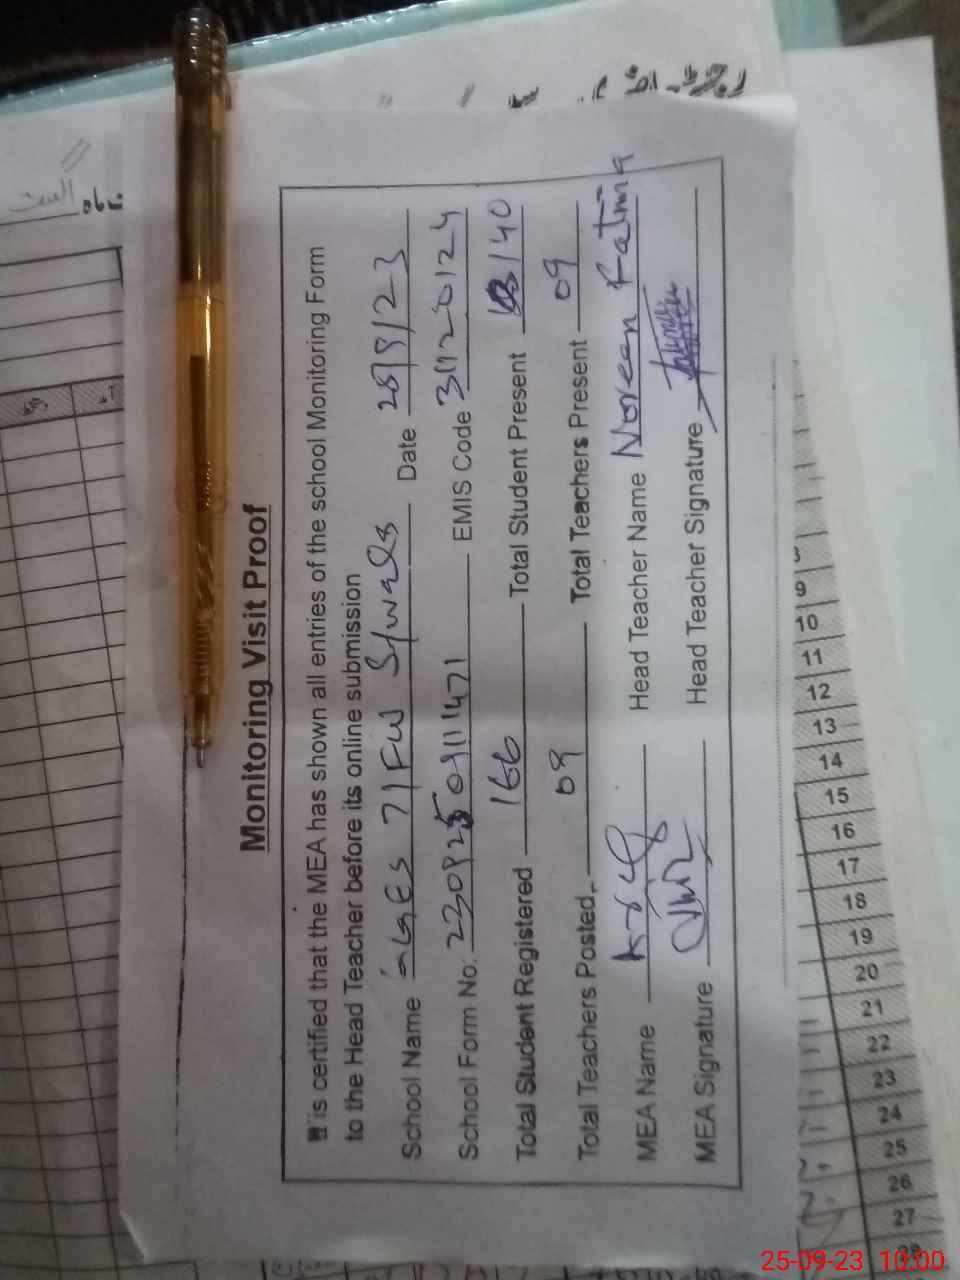 Monitoring Visit Proof
is certified that the MEA has shown all entries of the school Monitoring Form
to the Head Teacher before its online submission
School Name GGES 71FW Date 25/9/23
School Form No: EMIS Code 31120124
Total Student Registered 166 Total Student Present 140
Total Teachers Posted 09 Total Teachers Present 09
MEA Name Head Teacher Name Noreen Fatima
MEA Signature Head Teacher Signature
9
10
11
12
13
14
15
16
17
18
19
20
21
22
23
24
25
26
27
28
25-09-23 10:00